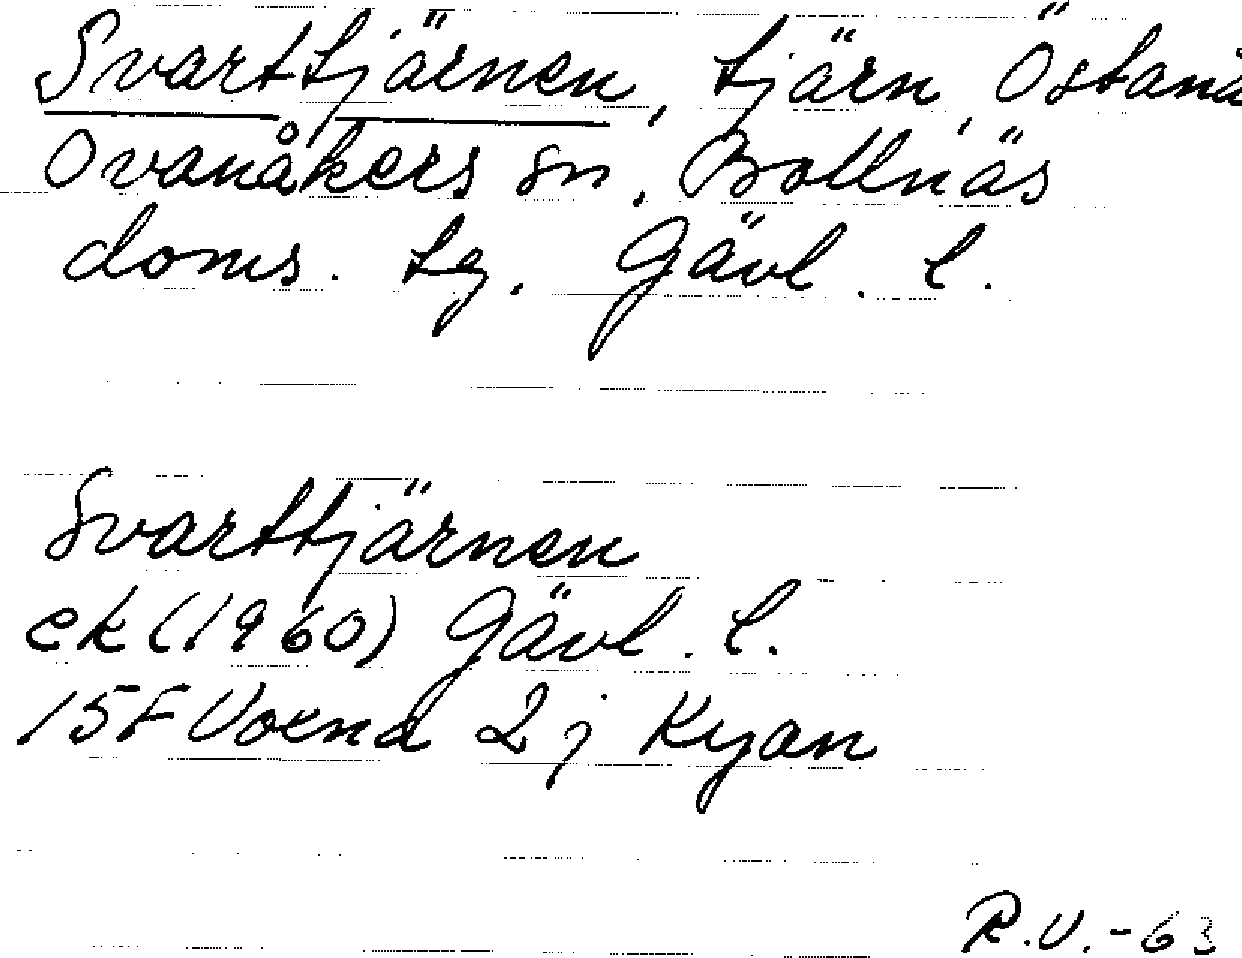 Svarttjärnen, tjärn, Östanå
Ovanåkers sn, Bollnäs
doms. tg. Gävl. l.
Svarttjärnen
ek (1960) Gävl. l.
15F Voxna 2j Kyan
R.V.-63